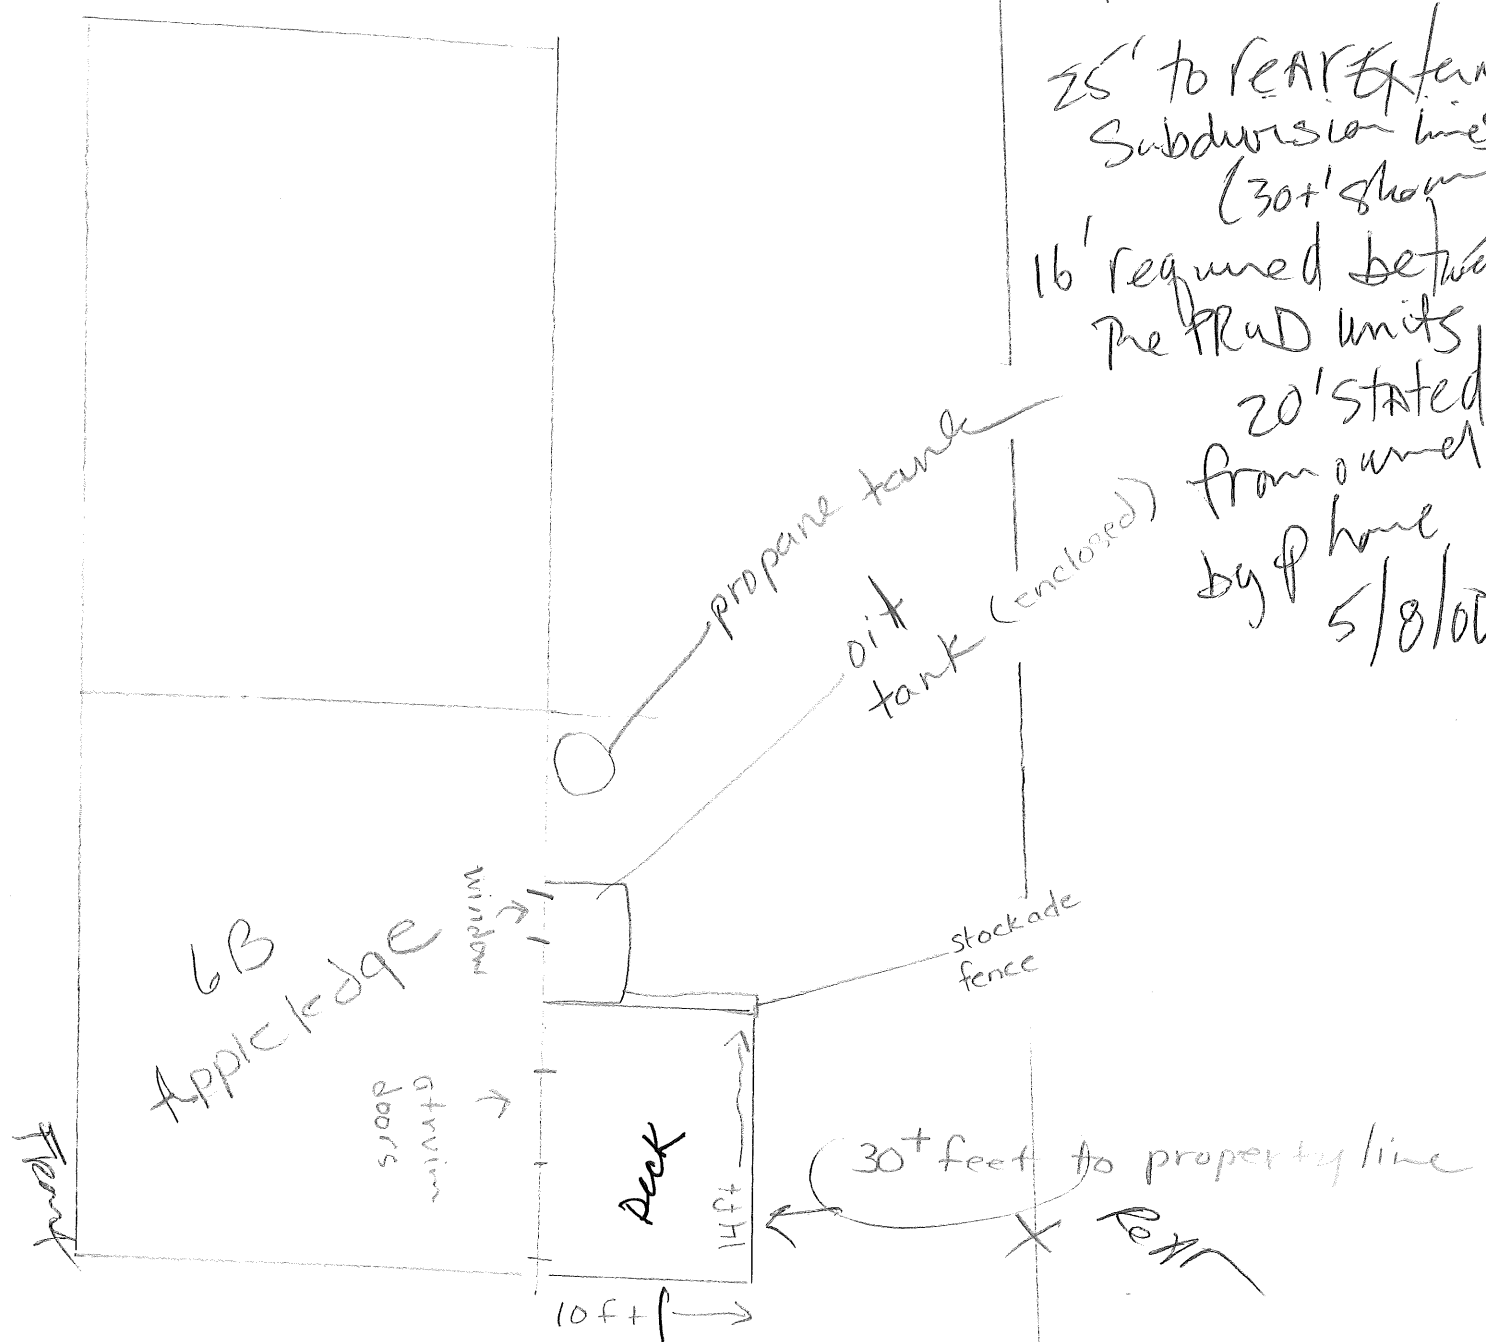 25' to reAr Extern
Subdivision lines
(30+' shown
16' required betwe
The PRUD units
20' stAted
from owner
by phone
5/8/00
propane tank
oil
tank (enclosed)
window
stockade
fence
6B
Appleledge
atrium
doors
Deck
14ft
30+ feet to property line
ReAr
Front
10ft